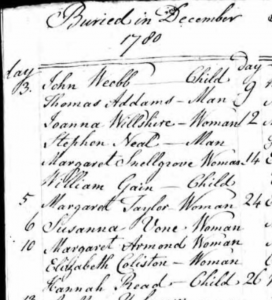 Buried in December
1780
day
day
3. John Webb Child 9
Thomas Addams - Man
Joanna Willshire - Woman 12
Stephen Neal - Man
Margaret Snellgrove Woman 14
William Gain - Child
5 Margaret Taylor Woman 24
6 Susanna Vone Woman
10 Margaret Armond Woman
Elizabeth Coleston - Woman
Hannah Read - Child 26